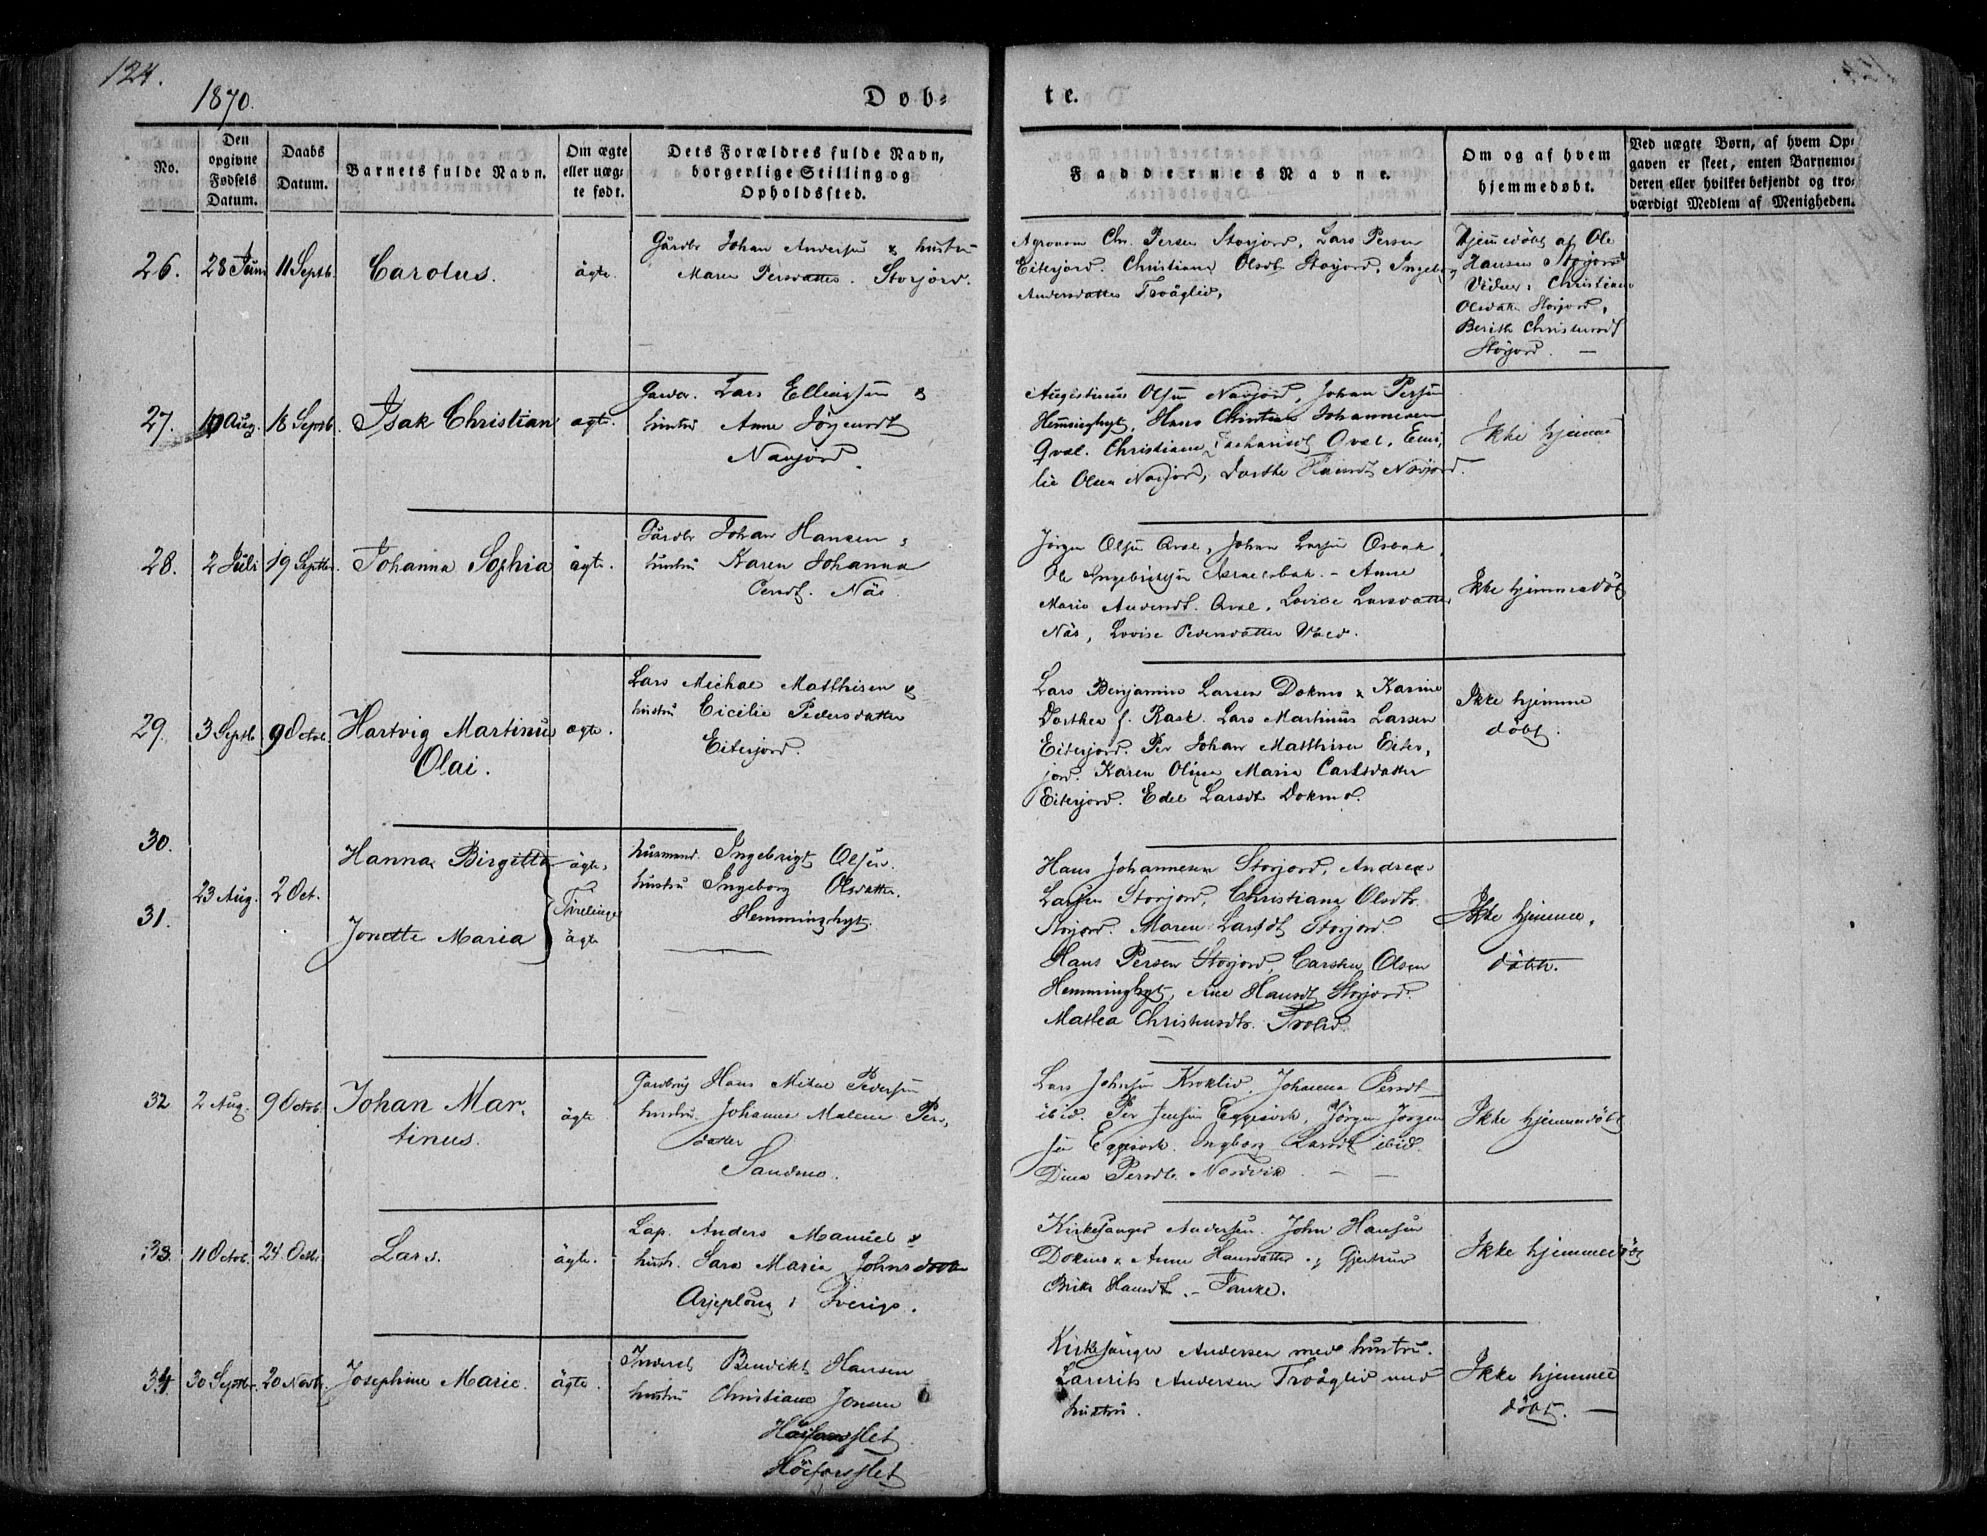 124.
1870.
Døb-
te.
No.
Den opgivne Fødsels Datum.
Daabs Datum.
Barnets fulde Navn.
Om ægte eller uægte født.
Dets Forældres fulde Navn, borgerlige Stilling og Opholdssted.
Faddernes Navne.
Om og af hvem hjemmedøbt.
Ved uægte Børn, af hvem Opgaven er skeet, enten Barnemoderen eller hvilket bekjendt og troværdigt Medlem af Menigheden.
26.
28 Juni
11 Septb.
Carolus.
ägte.
Gårdbr Johan Andersen & hustru
Maren Persdatter. Storjord.
Agronom Chr. Persen Storjord, Lars Persen
Eiterjord. Christiane Olsdt Storjord, Ingeborg
Andersdatter Tvåglid.
Hjemedöbt af Ole
Hansen Storjord
Vidner: Christiane
Olsdatt Storjord,
Berith
Storjord. —
27.
10 Aug.
18 Septb.
Isak Christian
ægte.
Gårdbr. Lars Ellingsen &
hustru Anne
Navjord.
Augustinus Olsen Navjord, Johan Persen
Hemminghyt, Hans Christian Johannesen
Qval. Christiane Zachariasdt Qval, Emi-
lie Olsen Navjord, Dorthe Hansdt Navjord.
Ikke hjemme
28.
2 Juli
19 Septbr.
Johanna Sophia
ägte.
Gårdbr Johan Hansen,
hustru Karen Johanna
Näs.
Jörgen Olsen Qval, Johan Larsen Osbak,
Ole Ingebrigtsen Israelsbak. - Anne
Marie Qval, Lovise Larsdatter
Näs, Lovise Pedersdatter Vold.
Ikke hjemmedöbt
29.
3 Septb.
9 Octob.
Hartvig Martinus
Olai.
ægte.
Lars Michal Matthisen &
hustru Cicilie Pedersdatter
Eiterjord.
Lars Benjamin Larsen Dokmo & Karine
Dorthea f. Rask. Lars Martinus Larsen
Eiterjord. Per Johan Matthisen Eiter-
jord. Karen Oline Marie Carlsdatter
Eiterjord. Edel Larsdt Dokmo.
Ikke hjemme
döbt.
30.
31.
23 Aug.
2 Oct.
Hanna Birgitta
Jonette Maria
ägte.
Tvelinge
ägte
husmand. Ingebrigt Olsen.
hustru Ingeborg Olsdatter.
Hemminghyt.
Hans Johannesen Storjord, Andreas
Larsen Storjord, Christiana Olsdtr.
Storjord. Maren Larsdt Storjord.
Hans Persen Storjord, Carsten Olsen
Hemminghyt, Ane Hansdt Storjord.
Mathea Christensdtr. Trolid
Ikke hjemme,
döbte.
32
2 Aug.
9 Octob.
Johan Mar-
tinus.
ägte
Gårdbrug Hans Mikal Pedersen
hustru Johanne Malene Per,
datter
Sandmo.
Lars Johnsen Kroklid. Johanna Persdt
ibid. Per Jensen Eggesvik, Jörgen Jörgen
sen Eggesvik. Ingborg Larsdt ibid.
Dina Persdt. Nordvik — —
Ikke hjemmedöbt
33.
11 Octob.
24. Octb.
Lars.
ägte.
Lap. Anders Manuel &
hust. Sara Maria Johnsdotter
Arjeploug i Sverige.
Kirkesanger Andersen. John Hansen
Dokmo & Anne Hansdatter og Gjertrud
Brita Hansdt. — Tanke.
Ikke hjemmedöbt
34.
30 Septbr.
20 Novbr.
Josephine Marie.
ägte.
Inderst Benedikt Hansen
hustru Christiane Jonsen
Höiforsslet
Kirkesanger Andersen med hustru.
Laurits Andersen Tvåglid med
hustru.
Ikke hjemme
döbt. —